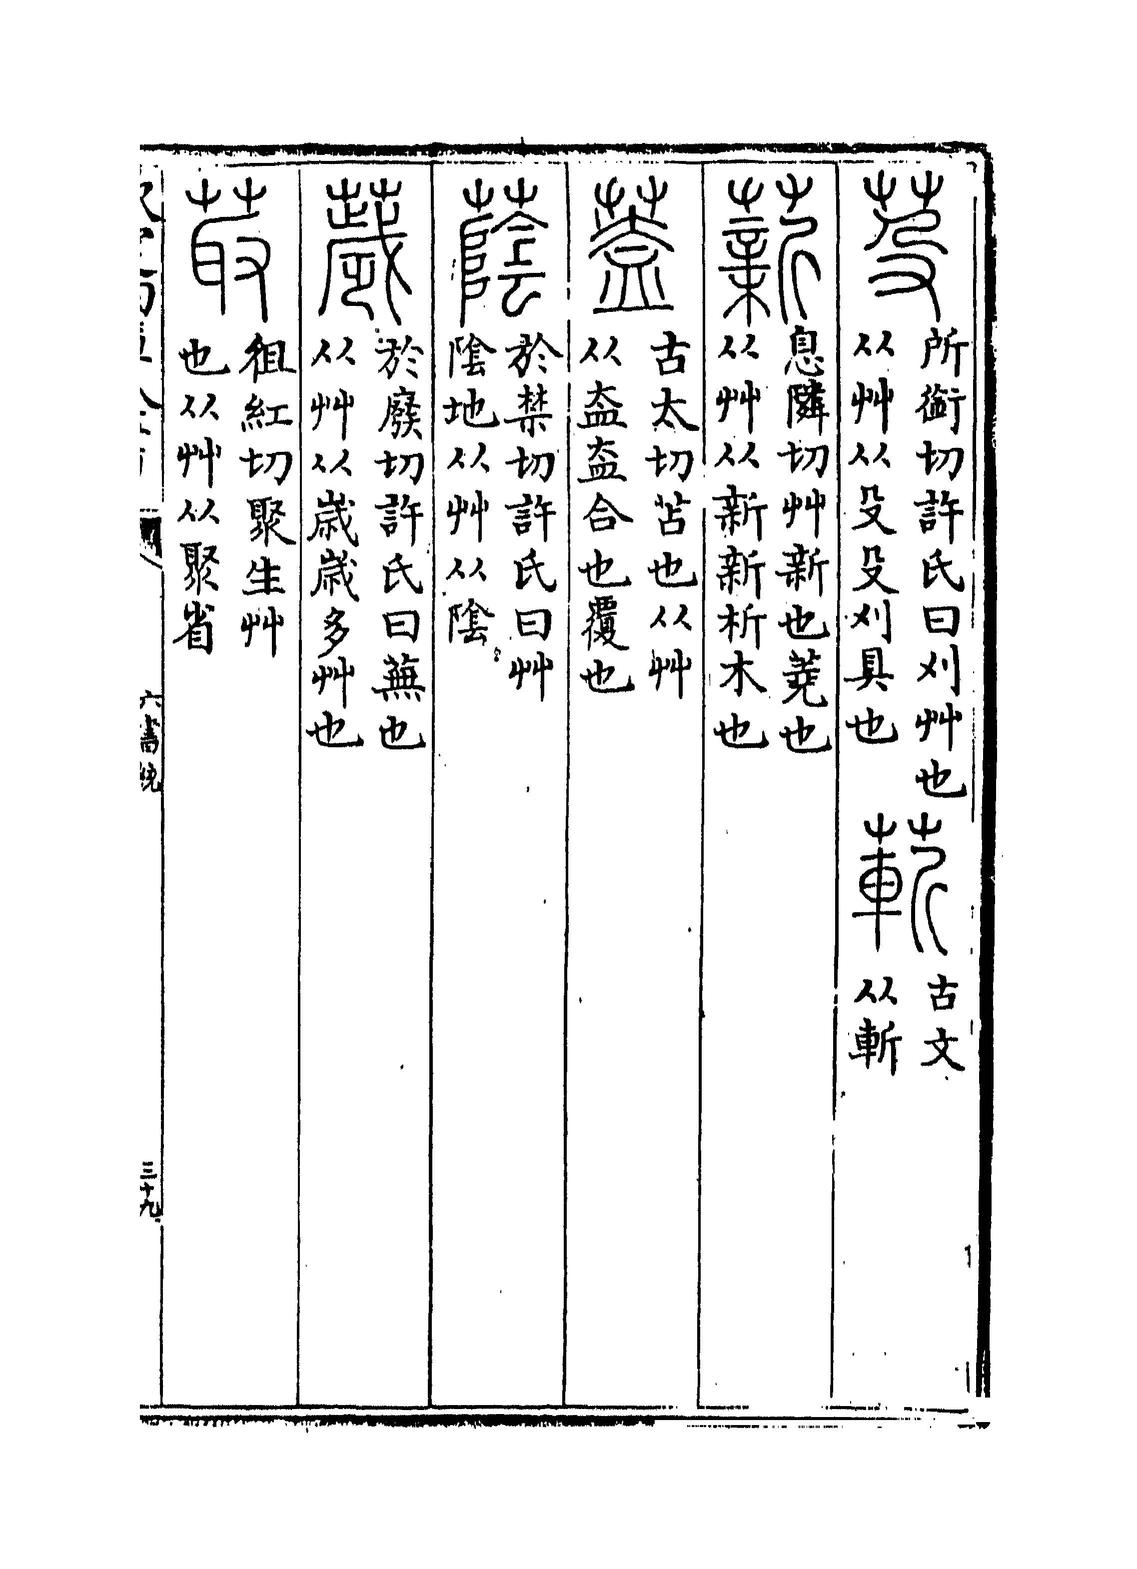 芟 所銜切許氏曰刈艸也
从艸从殳殳刈具也
蔪 古文
从斬
薪 息隣切艸新也蕘也
从艸从新新析木也
蓋 古太切苫也从艸
从盇盇合也覆也
蔭 於禁切許氏曰艸
陰地从艸从陰
薉 於廢切許氏曰蕪也
从艸从歳歳多艸也
菆 徂紅切聚生艸
也从艸从聚省
六書統
三十九